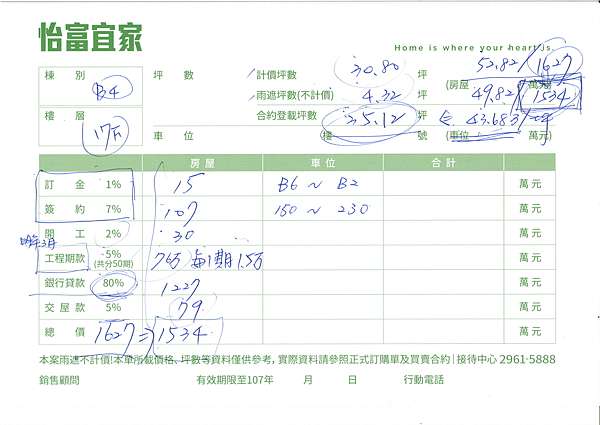 怡富宜家
Home is where your heart is.
棟別 B4
坪數 計價坪數 30.80 坪 (房屋 52.82/1627 萬元)
雨遮坪數(不計價) 4.32 坪 49.82/1534
樓層 17F
合約登載坪數 35.12 坪 43.683/坪
車位 樓 號 (車位 萬元)
房屋 車位 合計
訂金 1% 15 B6～B2 萬元
簽約 7% 107 150～230 萬元
開工 2% 30 萬元
明年3月
工程期款 5% (共分50期) 76万 每1期1.5万 萬元
銀行貸款 80% 1227 萬元
交屋款 5% 79 萬元
總價 1627 ⇒ 1534 萬元
本案雨遮不計價|本單所載價格、坪數等資料僅供參考,實際資料請參照正式訂購單及買賣合約|接待中心 2961-5888
銷售顧問 有效期限至107年 月 日 行動電話